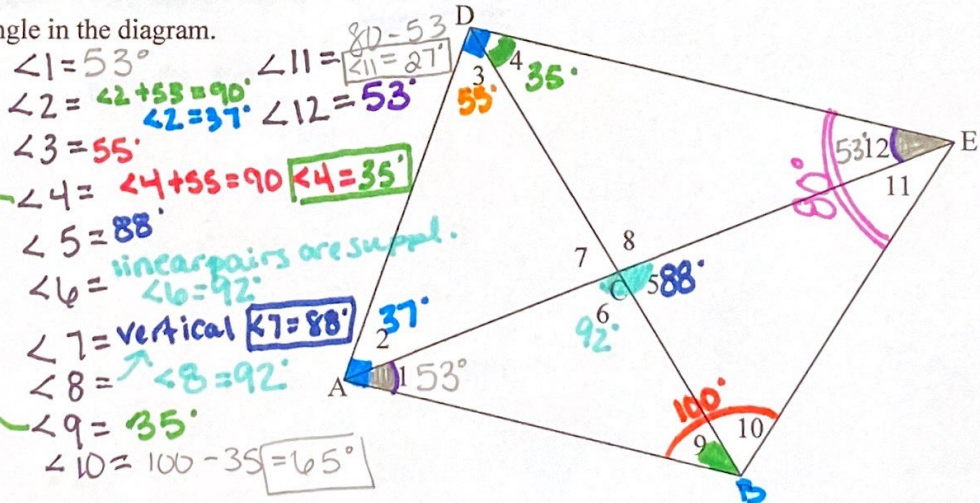 ngle in the diagram.
<1 = 53°
<2 = <2+53=90°
<2=37°
<3 = 55°
<4 = <4+55=90 <4=35°
<5 = 88°
linear pairs are suppl.
<6 = <6=92°
<7 = vertical <7=88°
<8 = <8=92°
<9 = 35°
<10 = 100-35 =65°
80-53
<11 = <11=27°
<12 = 53°
D
3
4
35°
55°
E
53° 12
11
80°
7
8
C
5 88°
6
92°
37°
2
A
1 53°
100°
9
10
B